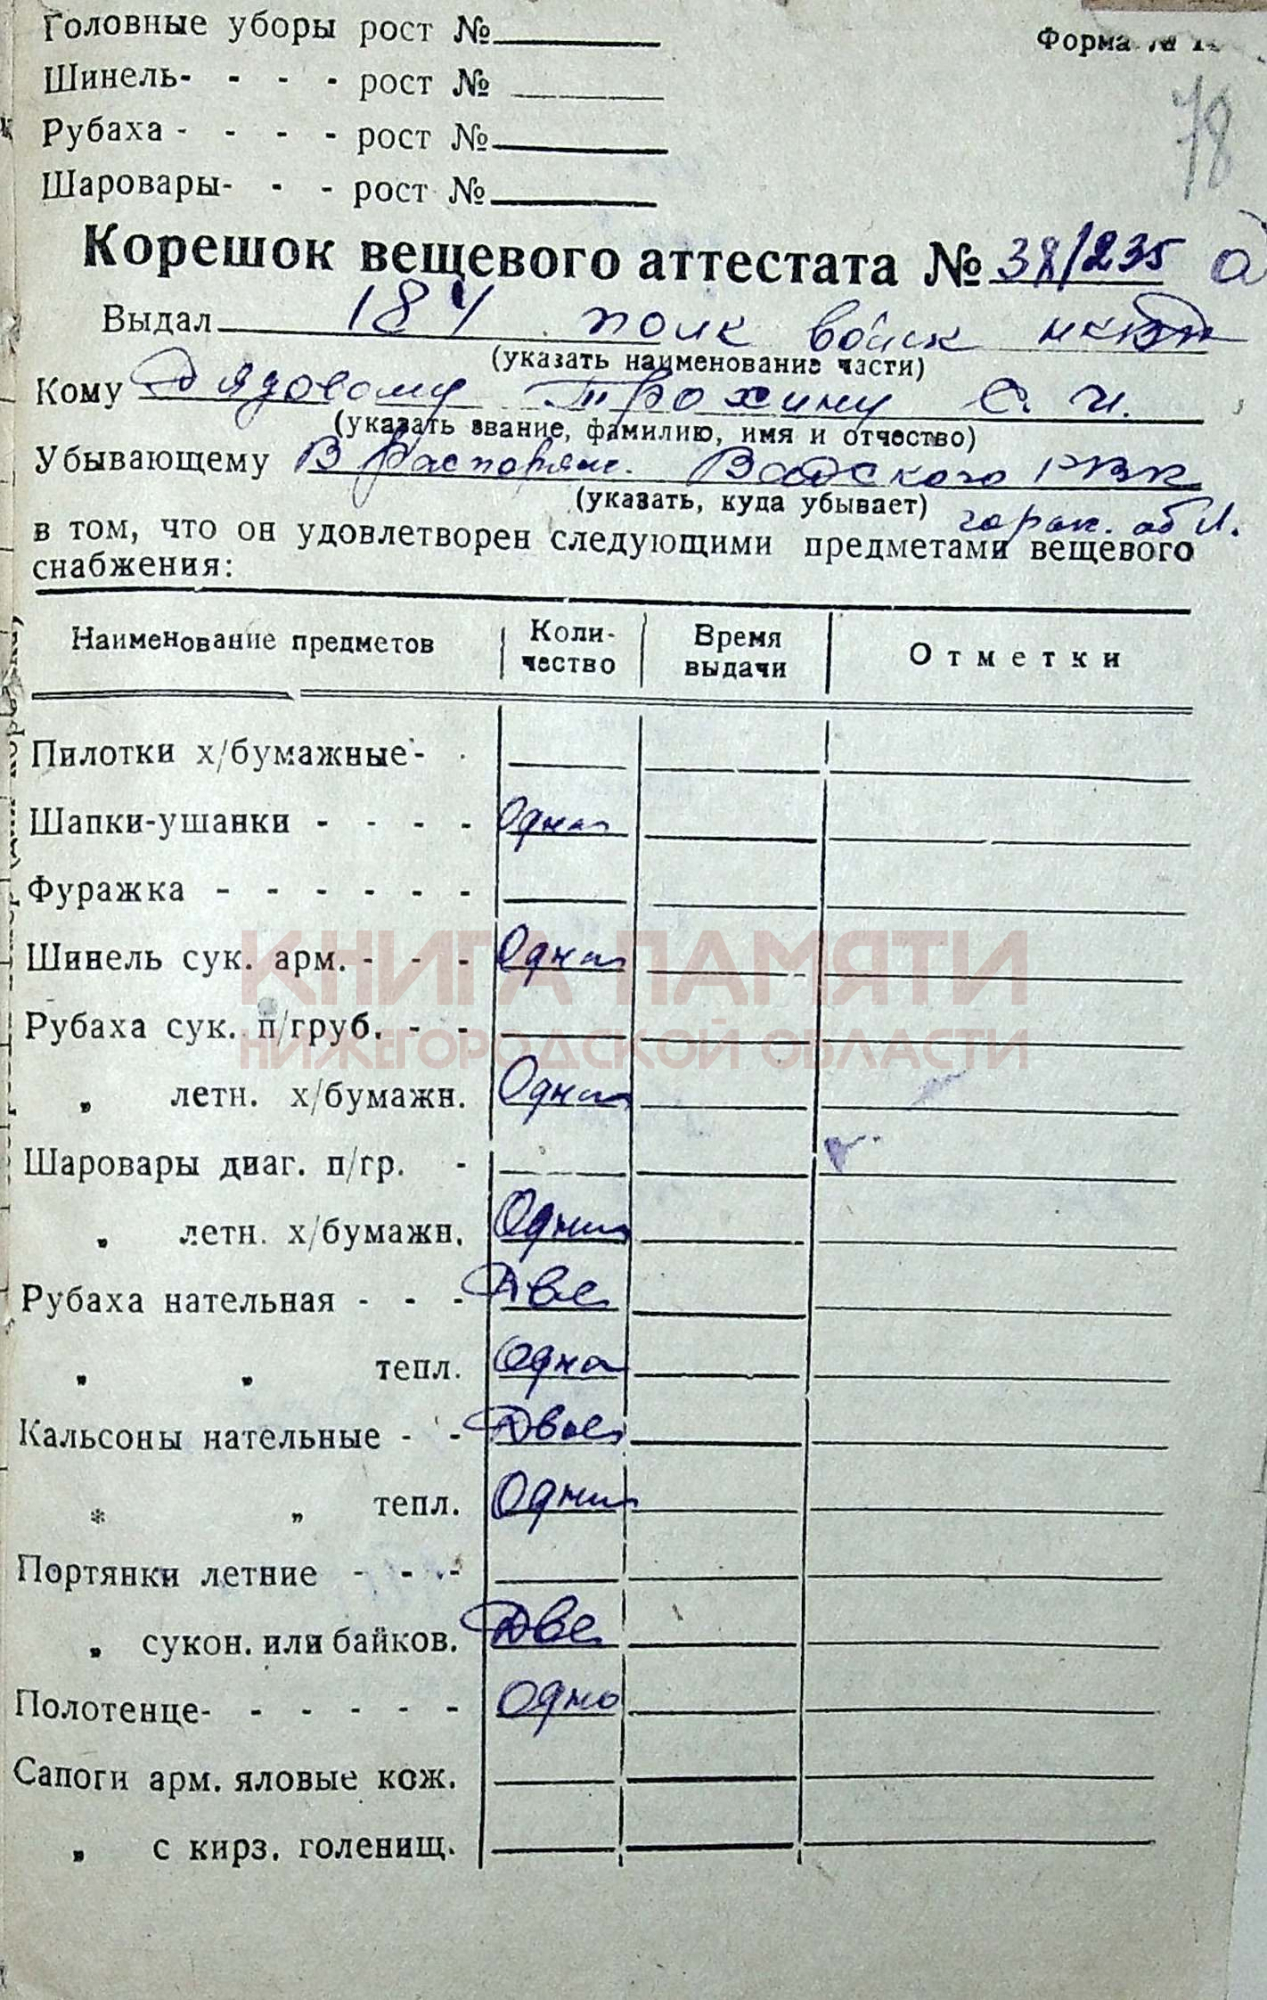 Головные уборы рост №
Форма №
Шинель- - - - рост №
78
Рубаха - - - - рост №
Шаровары- - - рост №
Корешок вещевого аттестата № 38/235
Выдал 184 полк войск НКВД
(указать наименование части)
Кому Рядовому Трохину С. И.
(указать звание, фамилию, имя и отчество)
Убывающему В распоряж. Вадского РВК
(указать, куда убывает) горьк. обл.
в том, что он удовлетворен следующими предметами вещевого
снабжения:
Наименование предметов Коли- чество Время выдачи Отметки
Пилотки х/бумажные -
Шапки-ушанки - - - - Одна
Фуражка - - - - - -
Шинель сук. арм. - - - Одна
КНИГА ПАМЯТИ
Рубаха сук. п/груб. - -
НИЖЕГОРОДСКОЙ ОБЛАСТИ
„ летн. х/бумажн. Одна
Шаровары диаг. п/гр. -
„ летн. х/бумажн. Одни
Рубаха нательная - - - Две
„ „ тепл. Одна
Кальсоны нательные - - Двое
* „ тепл. Одни
Портянки летние - - -
„ сукон. или байков. Две
Полотенце- - - - - - Одно
Сапоги арм. яловые кож.
„ с кирз. голенищ.